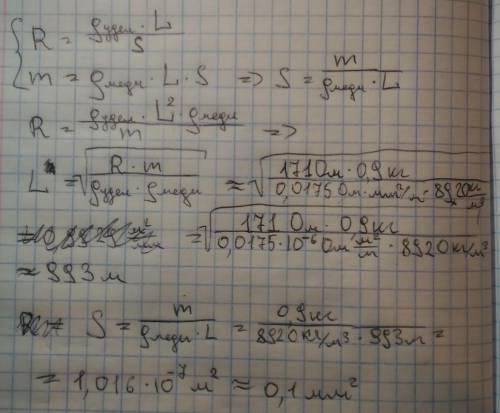 R = ρудел · L / S
m = ρмеди · L · S => S = m / ρмеди · L
R = ρудел · L² · ρмеди / m =>
L = √(R · m / ρудел · ρмеди) ≈ √(171 Ом · 0,9 кг / 0,0175 Ом · мм²/м · 8920 кг/м³)
= √(171 Ом · 0,9 кг / 0,0175 · 10⁻⁶ Ом м²/м · 8920 кг/м³)
≈ 993 м
S = m / ρмеди · L = 0,9 кг / 8920 кг/м³ · 993 м =
= 1,016 · 10⁻⁷ м² ≈ 0,1 мм²